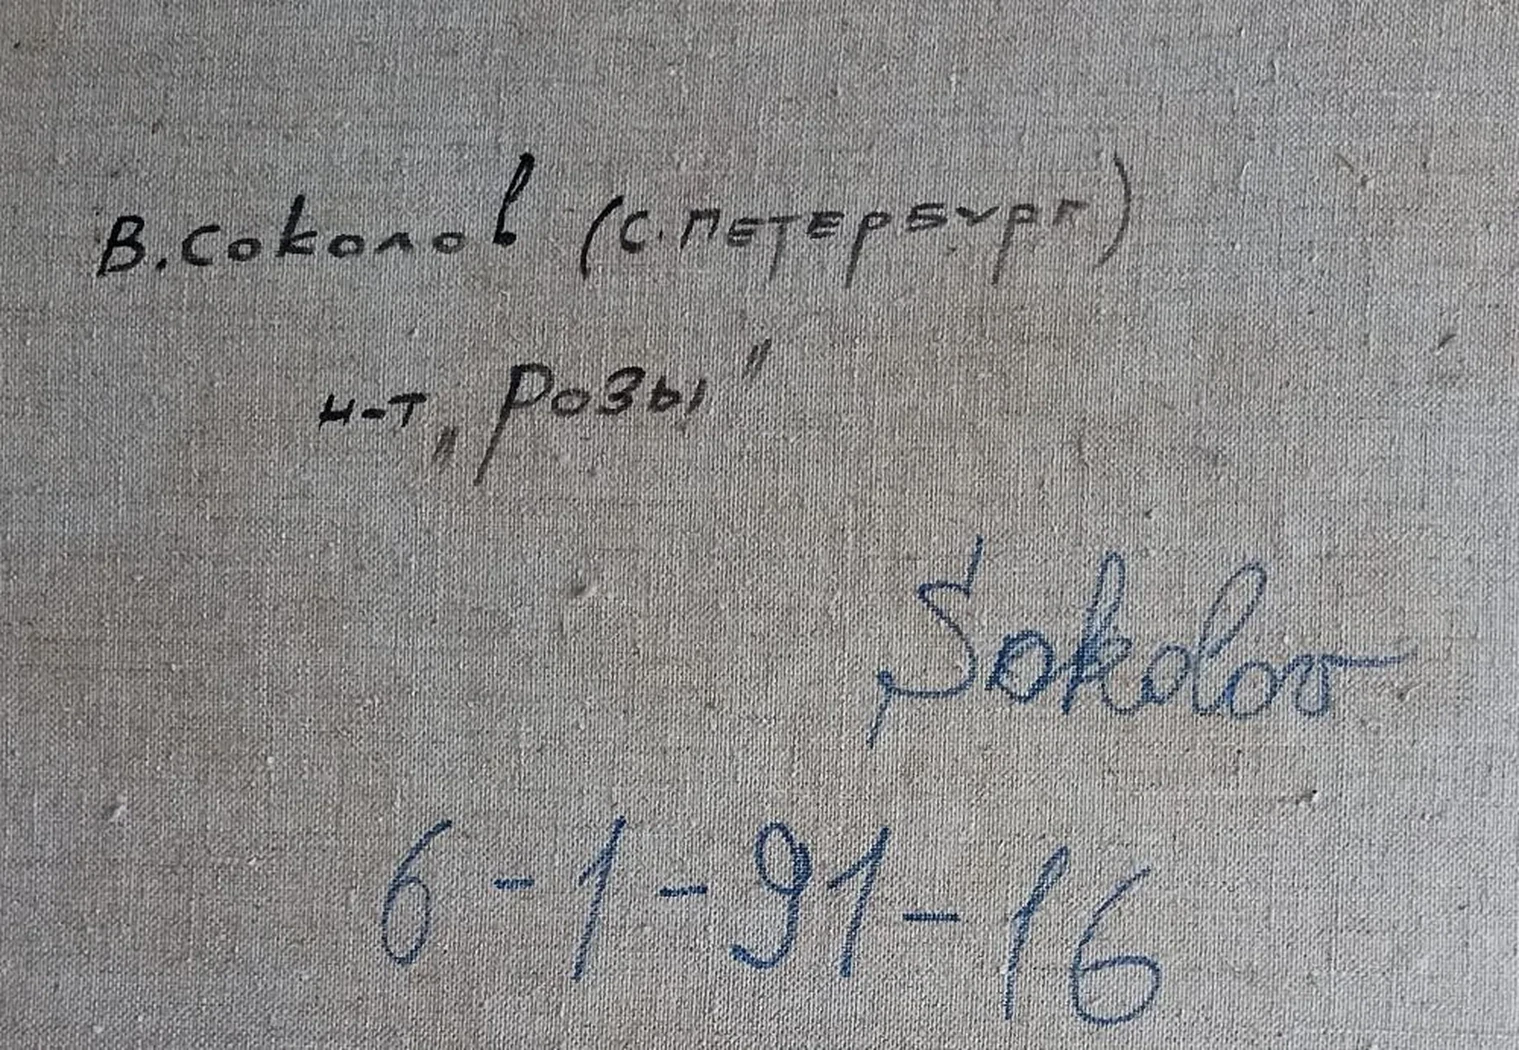 В. Соколов (С. ПЕТЕРБУРГ)
н-т „Розы"
Sokolov
6-1-91-16